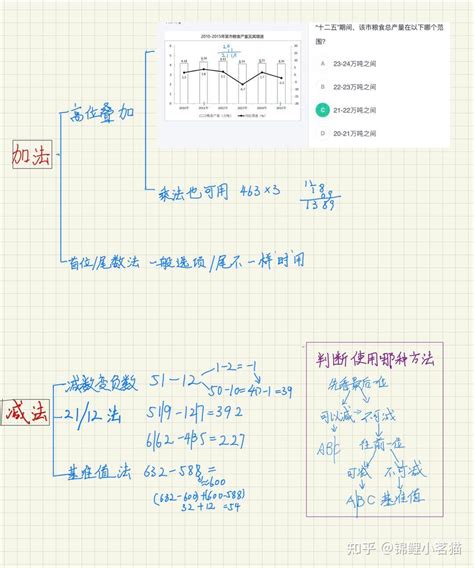 2010-2015年某市粮食产量及其增速
"十二五"期间，该市粮食总产量在以下哪个范围？
A 23-24万吨之间
B 22-23万吨之间
C 21-22万吨之间
D 20-21万吨之间
高位叠加
加法
乘法也可用 463×3
1389
首位/尾数法 一般选项/尾不一样时用
减数变负数 51-12
1-2=-1
50-10=40-1=39
减法
21/12法 519-127=392
662-435=227
基准值法 632-588=
≈600
(632-600)+(600-588)
32+12=54
判断使用哪种方法
先看最后一位
可以减 不可减
ABC 往前一位
可减 不可减
ABC 基准值
知乎 @锦鲤小茗猫